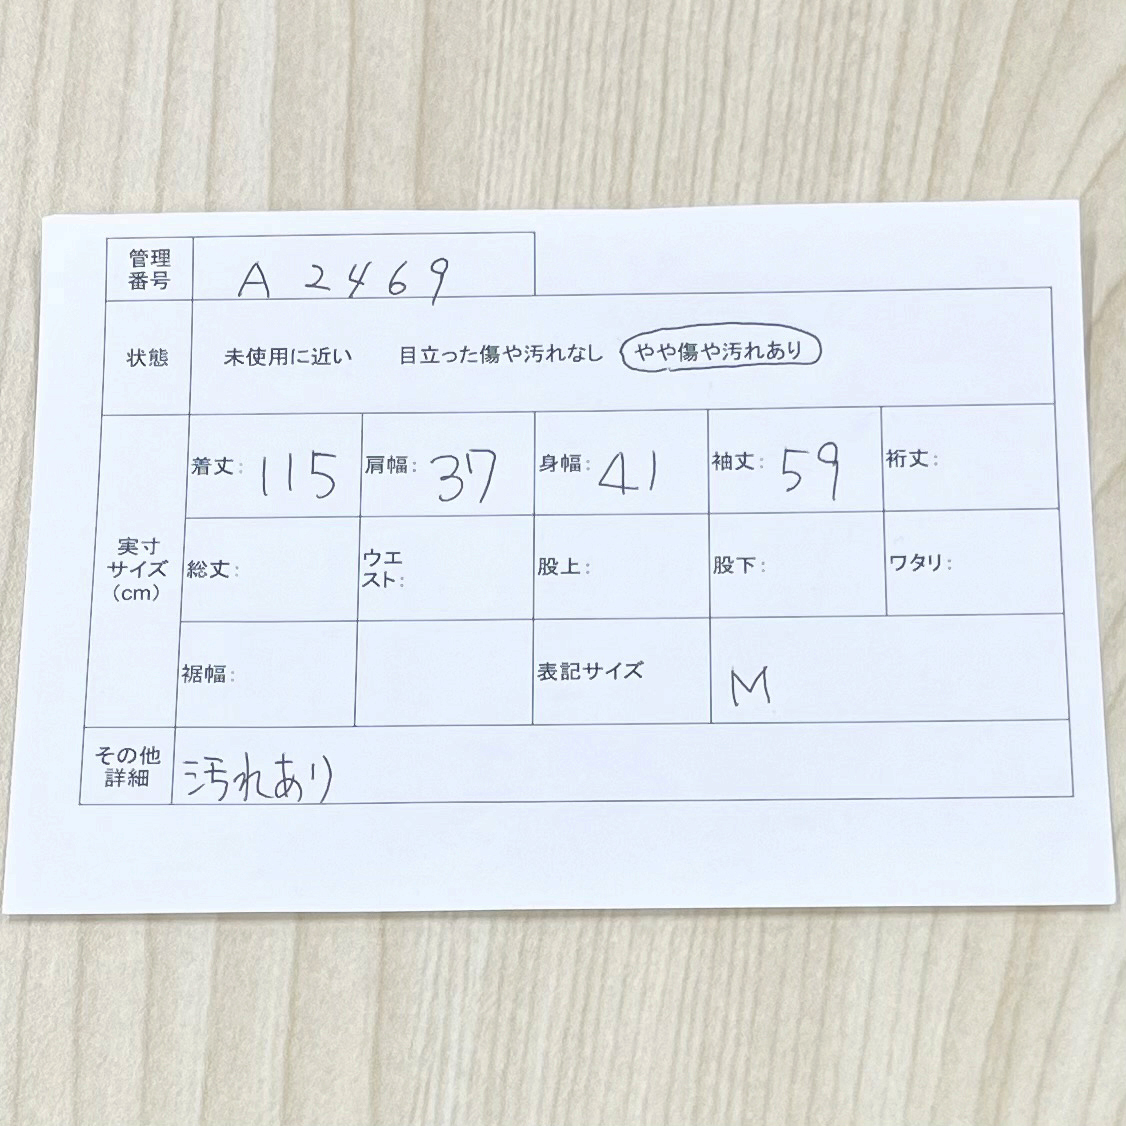 管理番号 A2469
状態 未使用に近い 目立った傷や汚れなし やや傷や汚れあり
実寸サイズ(cm)
着丈: 115 肩幅: 37 身幅: 41 袖丈: 59 裄丈:
総丈: ウエスト: 股上: 股下: ワタリ:
裾幅: 表記サイズ M
その他詳細 汚れあり